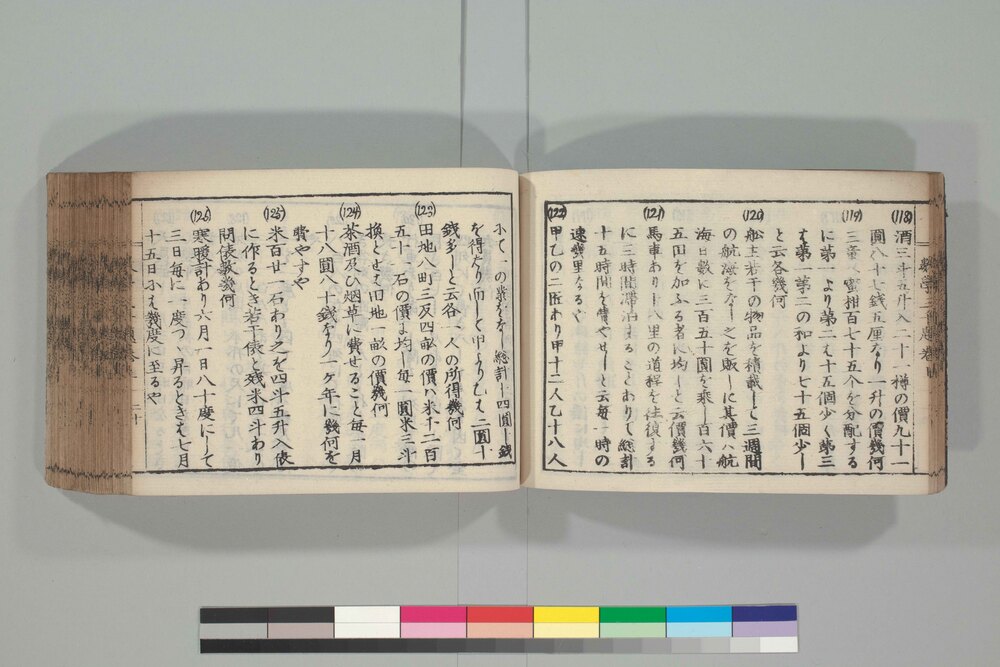 (118) 酒三斗五升入二十一樽の價九十一
圓八十七銭五厘なり一升の價幾何
(119) 三童蜜柑百七十五个を分配する
に第一ハより第二ハ十五個少く第三
ハ第一第二の和より七十五個少し
と云各幾何
(120) 船主若干の物品を積載して三週間
の航海をなし之を販しに其價ハ航
海日數に三百五十圓を乗し百六十
五圓を加ふる者に均しと云價幾何
(121) 馬車あり十八里の道程を往復する
に三時間滞泊することありて総計
十五時間を費やせしと云毎一時の
速幾里なるや
(122) 甲乙の二匠あり甲十二人乙十八人
にて一の業をなし総計十四圓
を得たり而して甲ハ乙より二圓十
銭多しと云各一人の所得幾何
(123) 田地八町三反四畝の價ハ米十二百
五十一石の價に均し毎一圓米三斗
換とせは田地一畝の價幾何
(124) 茶酒及ひ烟草に費せること毎一月
十八圓八十錢なり一ケ年に幾何を
費やすや
(125) 米百廿一石あり之を四斗五升入俵
に作るとき若干俵と残米四斗あり
問俵數幾何
(126) 寒暖計あり六月一日八十度にして
三日毎に一度つゝ昇るときハ七月
十五日にハ幾度に至るや